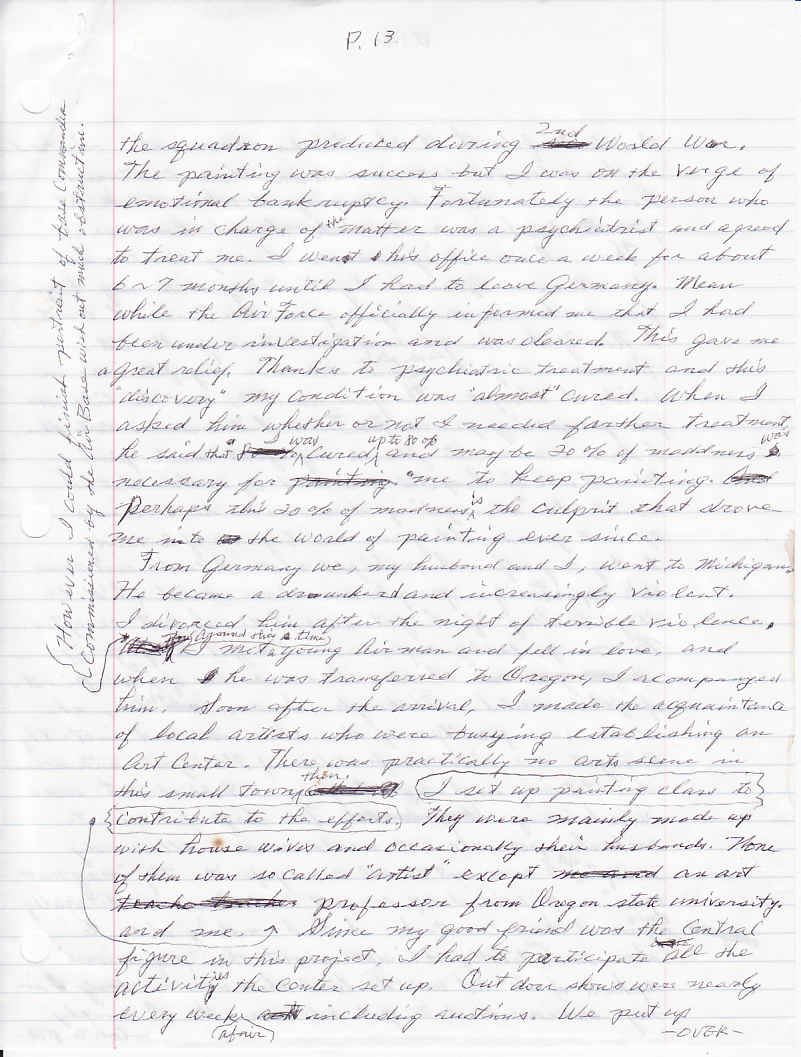 P. 13
the squadron produced during 2nd World War.
The painting was success but I was on the verge of
emotional bankruptcy. Fortunately the person who
was in charge of the matter was a psychiatrist and agreed
to treat me. I went his office once a week for about
6 ~ 7 months until I had to leave Germany. Mean
while the Air Force officially informed me that I had
been under investigation and was cleared. This gave me
a great relief. Thanks to psychiatric treatment and this
"discovery" my condition was "almost" cured. When I
asked him whether or not I needed farther treatment
he said that "I was cured up to 80% and may be 20% of maddness was
necessary for me to keep painting.
Perhaps this 20% of madness is the culprit that drove
me into the world of painting ever since.
From Germany we, my husband and I, went to Michigan.
He became a drunkerd and increasingly violent.
I divorced him after the night of terrible violence.
Around this time I met a young Air man and fell in love, and
when he was transferred to Oregon, I accompanyed
him. Soon after the arrival, I made the acquaintance
of local artists who were busying establishing an
Art Center. There was practically no arts scene in
this small town then. I set up painting class to
contribute to the efforts. They were mainly made up
with house wives and occasionally their husbands. None
of them was so called "artist" except an art
professor from Oregon state university.
and me. Since my good friend was the central
figure in this project, I had to participate all the
activities the Center set up. Out door shows were nearly
every week including auctions. We put up
(afair)
-OVER-
However I could finish portrait of base Commander
commissioned by the Air Base without much obstruction.